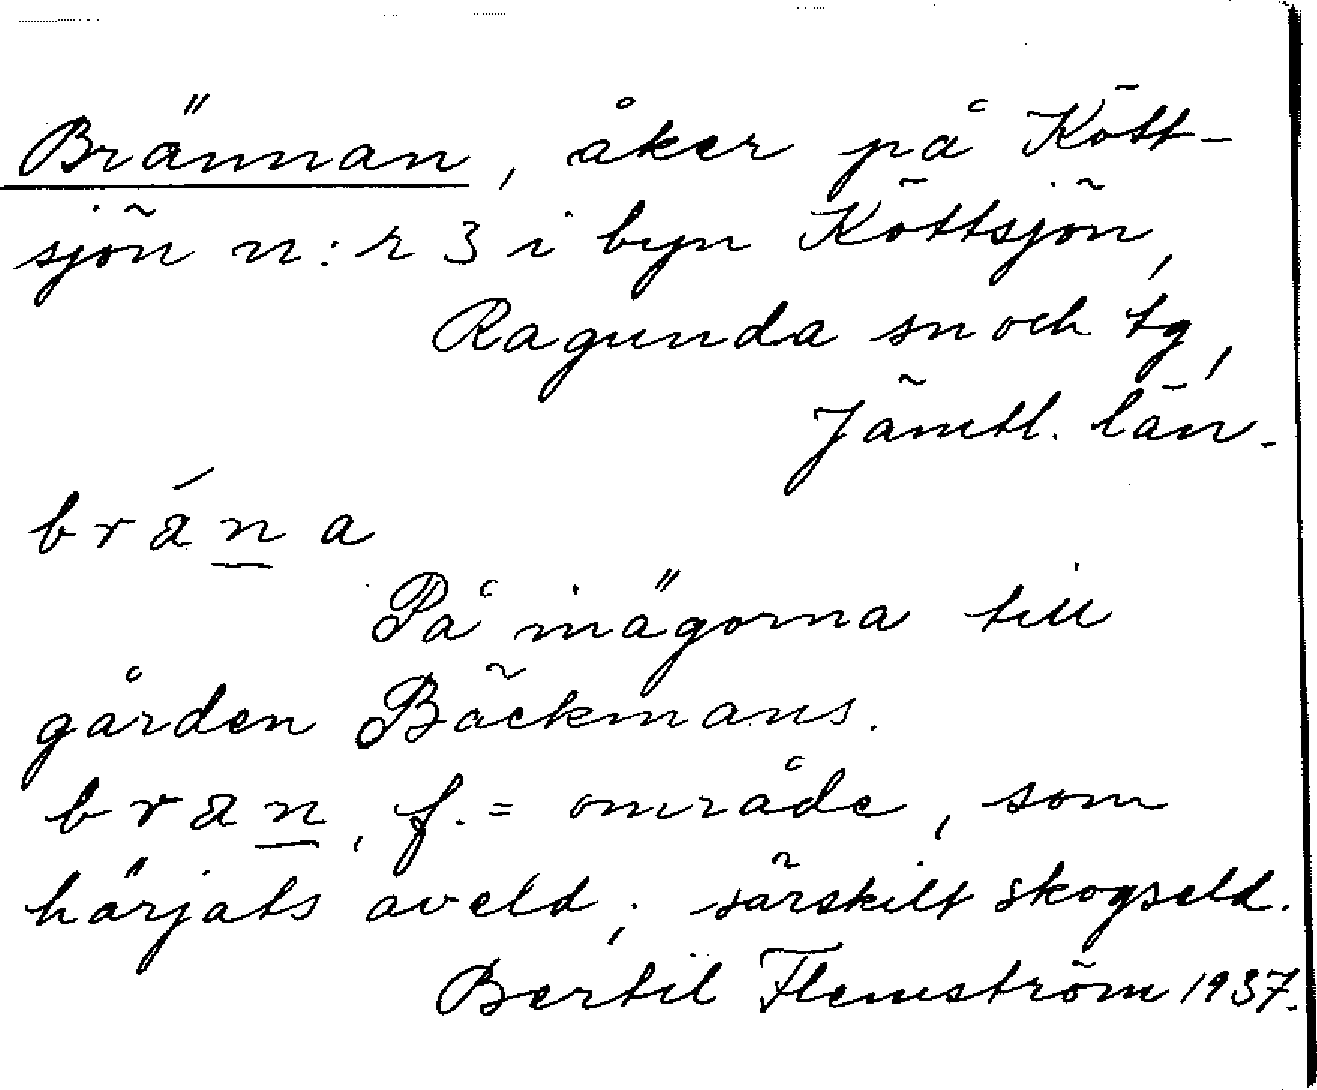 Brännan, åker på Kött-
sjön n:r 3 i byn Köttsjön,
Ragunda sn och tg,
Jämtl. län.
brána
På inägorna till
gården Bäckmans.
bran, f. = område, som
härjats av eld; särskilt skogseld.
Bertil Flemström 1937.